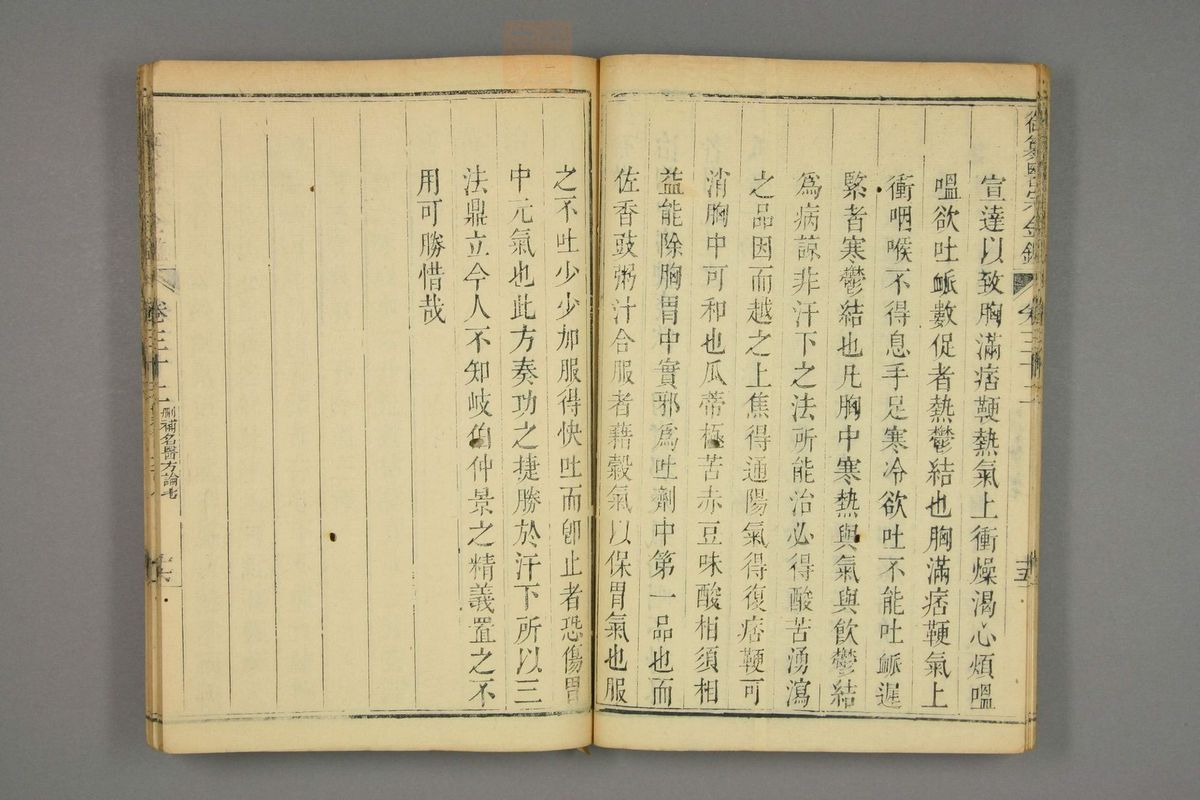 宣達以致胸滿痞鞕熱氣上衝燥渴心煩嗢
嗢欲吐䘑數促者熱鬱結也胸滿痞鞕氣上
衝咽喉不得息手足寒冷欲吐不能吐䘑遲
緊者寒鬱結也凡胸中寒熱與氣與飲鬱結
爲病諒非汗下之法所能治必得酸苦湧瀉
之品因而越之上焦得通陽氣得復痞鞕可
消胸中可和也瓜蒂極苦赤豆味酸相須相
益能除胸胃中實邪爲吐劑中第一品也而
佐香豉粥汁合服者藉穀氣以保胃氣也服
之不吐少少加服得快吐而卽止者恐傷胃
中元氣也此方奏功之捷勝於汗下所以三
法鼎立今人不知岐伯仲景之精義置之不
用可勝惜哉
卷三十二
刪補名醫方論七